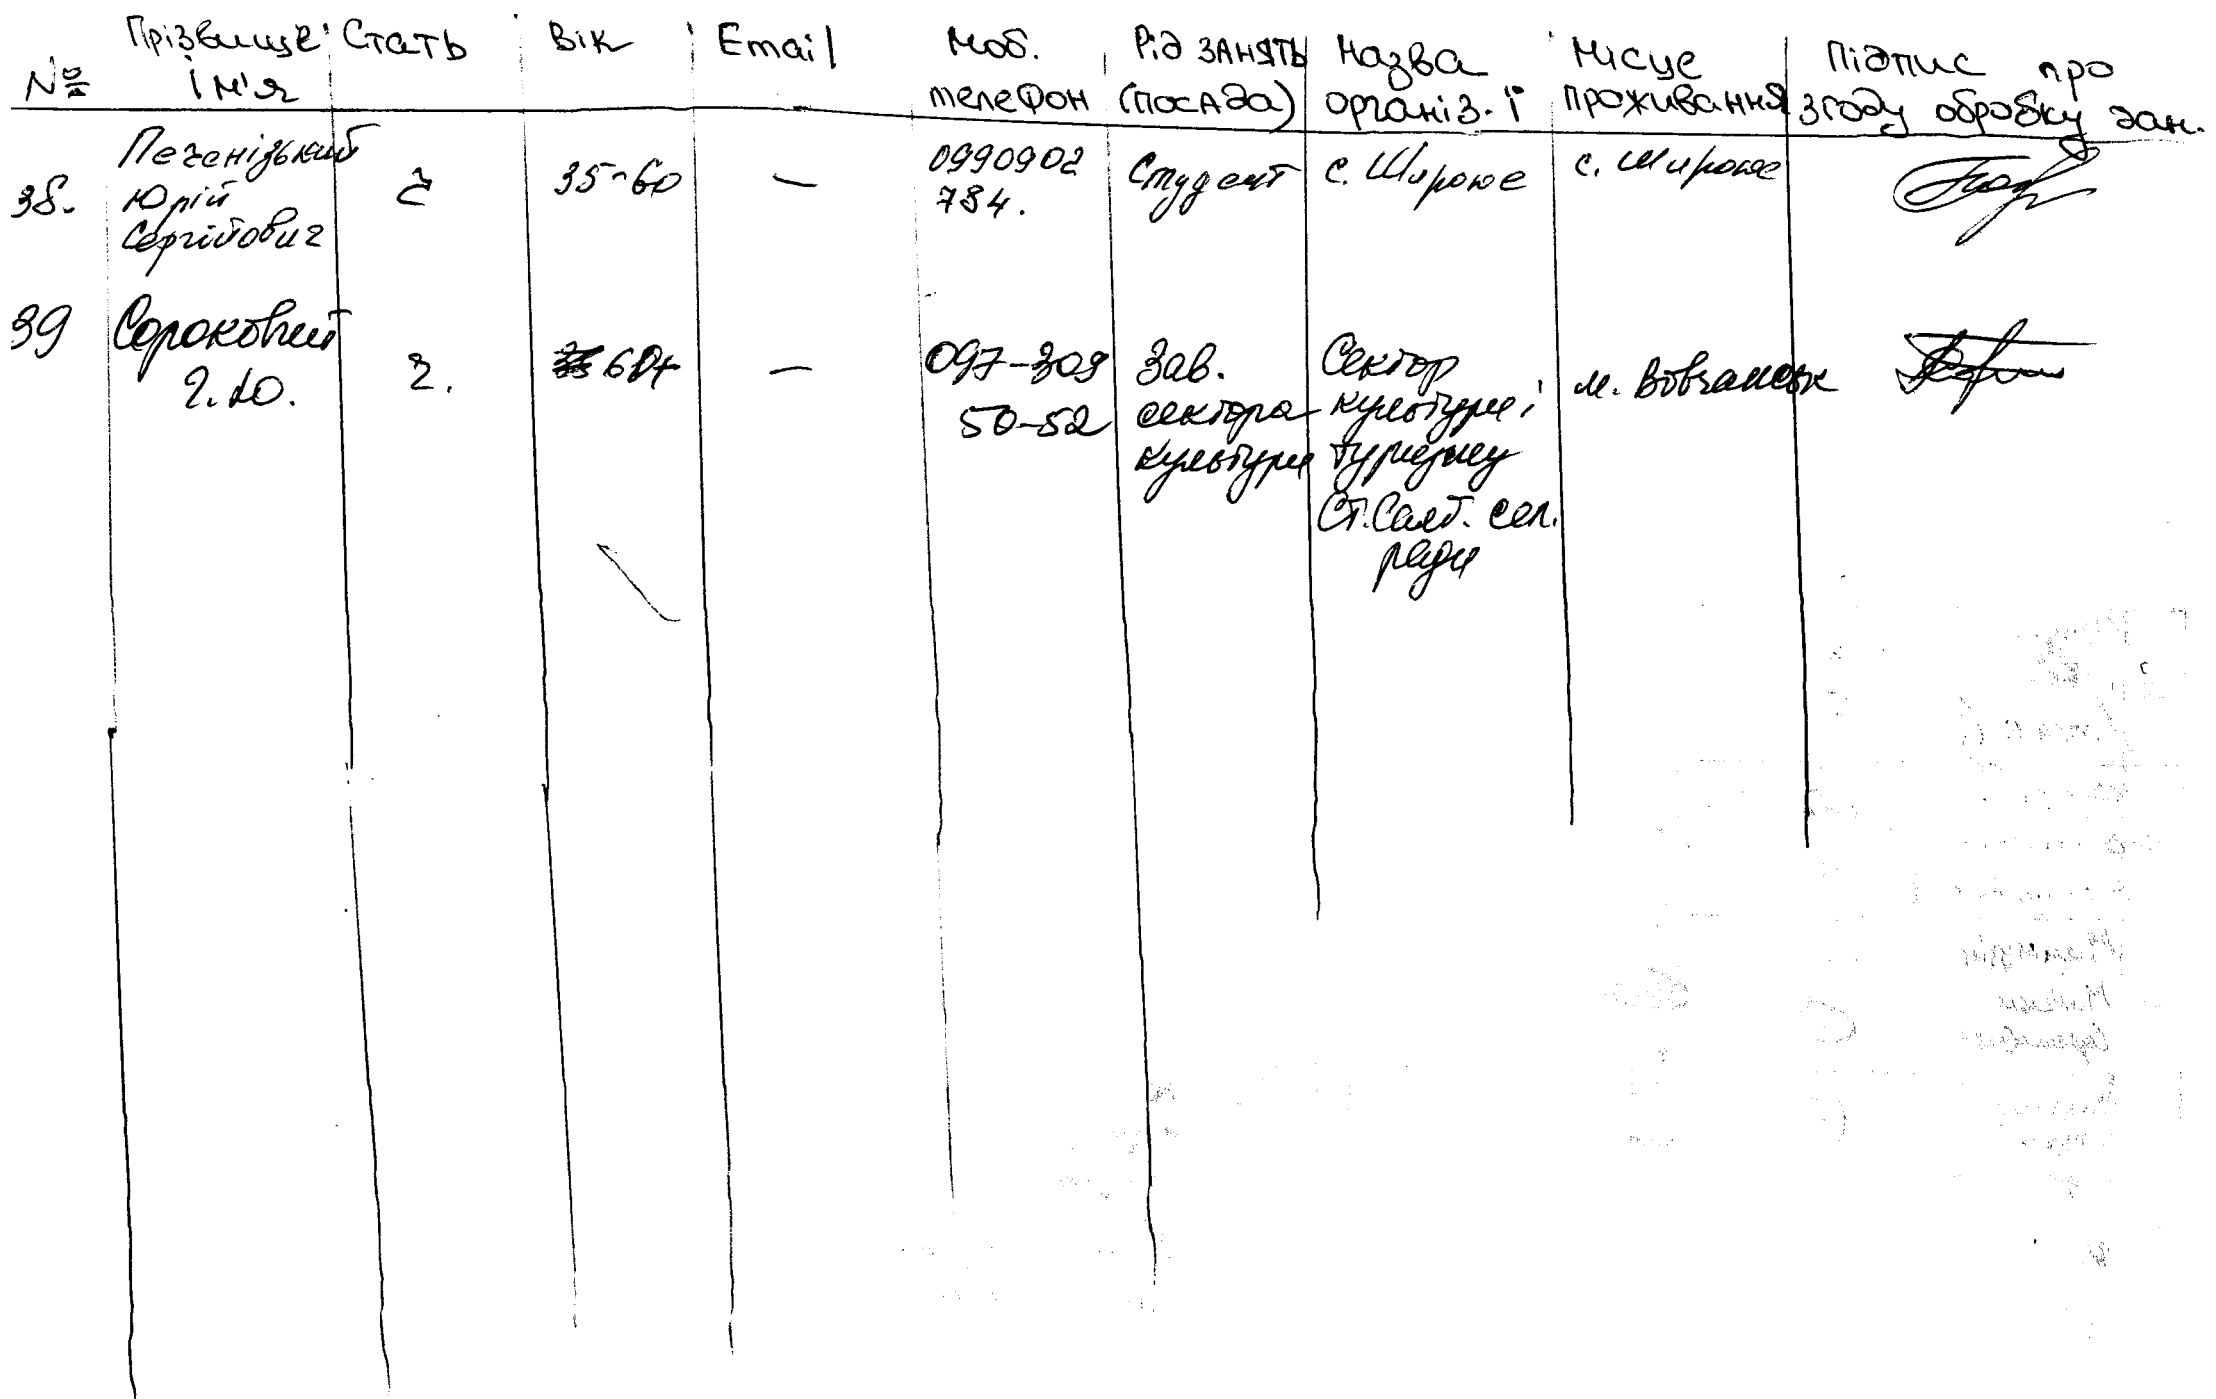 № Прізвище Ім'я Стать Вік Email Моб. телефон Рід занять (посада) Назва організ-ї Місце проживання Підпис про згоду обробку дан.
38. Печенізький Юрій Сергійович ч 35-60 — 0990902 734. Студент с. Широке с. Широке
39 Сороковий Г.Ю. ч. 60+ — 097-309 50-52 Зав. сектора культури Сектор культури і туризму Ст.Салт. сел. ради м. Вовчанськ